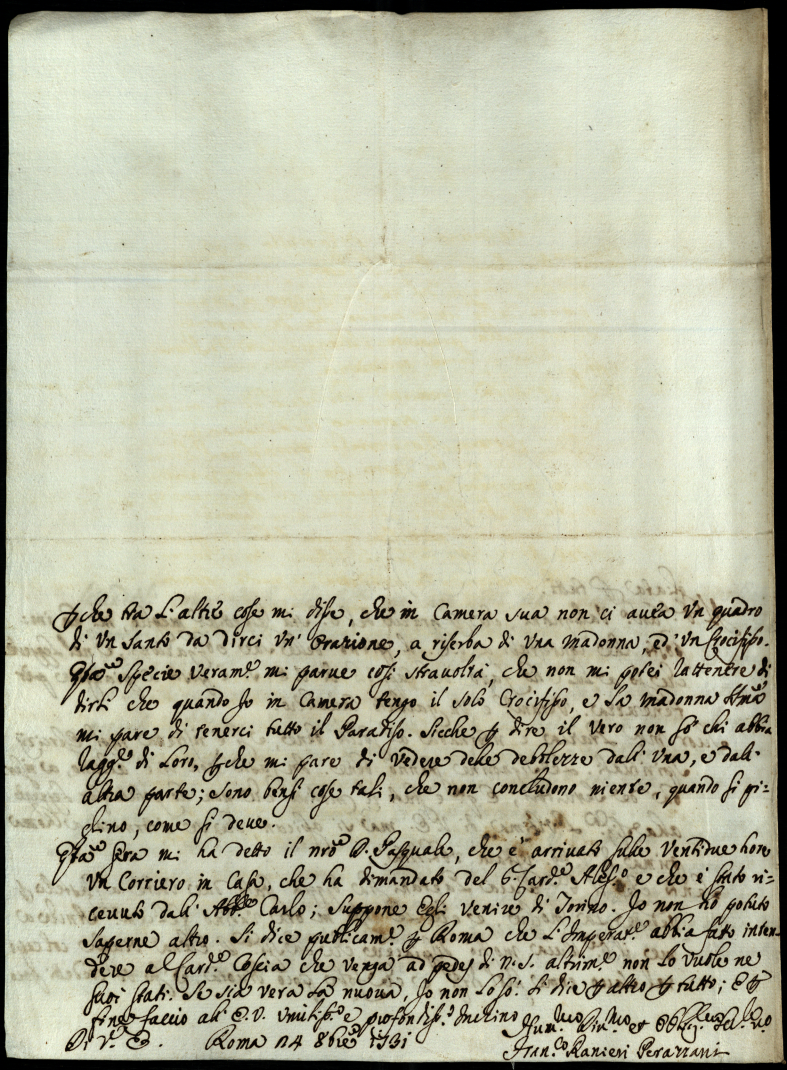 che tra l'altre cose mi disse, che in Camera sua non ci avea un quadro
di un Santo da dirci un' Orazione, a riserba di una Madonna, ed un Crocifisso.
Specie veram.e mi parve così stravolta, che non mi potei lattenere di
dirli che quando Io in Camera tengo il solo Crocifisso, e la Madonna SSma
mi pare di tenerci tutto il Paradiso. Sicche p dire il vero non so chi abbia
di Loro, pche mi pare di vedere delle debolezze dall' una, e dall'
altra parte; sono bensi cose tali, che non concludono niente, quando si pi-
glino, come si deve.
Sera mi ha detto il nro D. Pasquale, che è arrivato sulle ventidue hore
un Corriero in Casa, che ha dimandato del Card.e Aless.o e che è stato ri-
cevuto dall' Abb.e Carlo; suppone Egli venire di Torino. Io non hò potuto
saperne altro. Si dice publicam.e p Roma che l'Imperat.e abbia fatto inten-
dere al Card.e Coscia che venga ad pedes di N. S. altrim.e non lo vuole ne
suoi stati. Se sia vera la nuova, Io non lo so! Si dice altro p tutto; E p
fine faccio all' E. V. umiliss.o e profondiss.o Inchino
Di V. E. Roma 8bre 1731
Hum.mo Div.mo et Obblig.mo
Fran.co Ranieri Perazzani